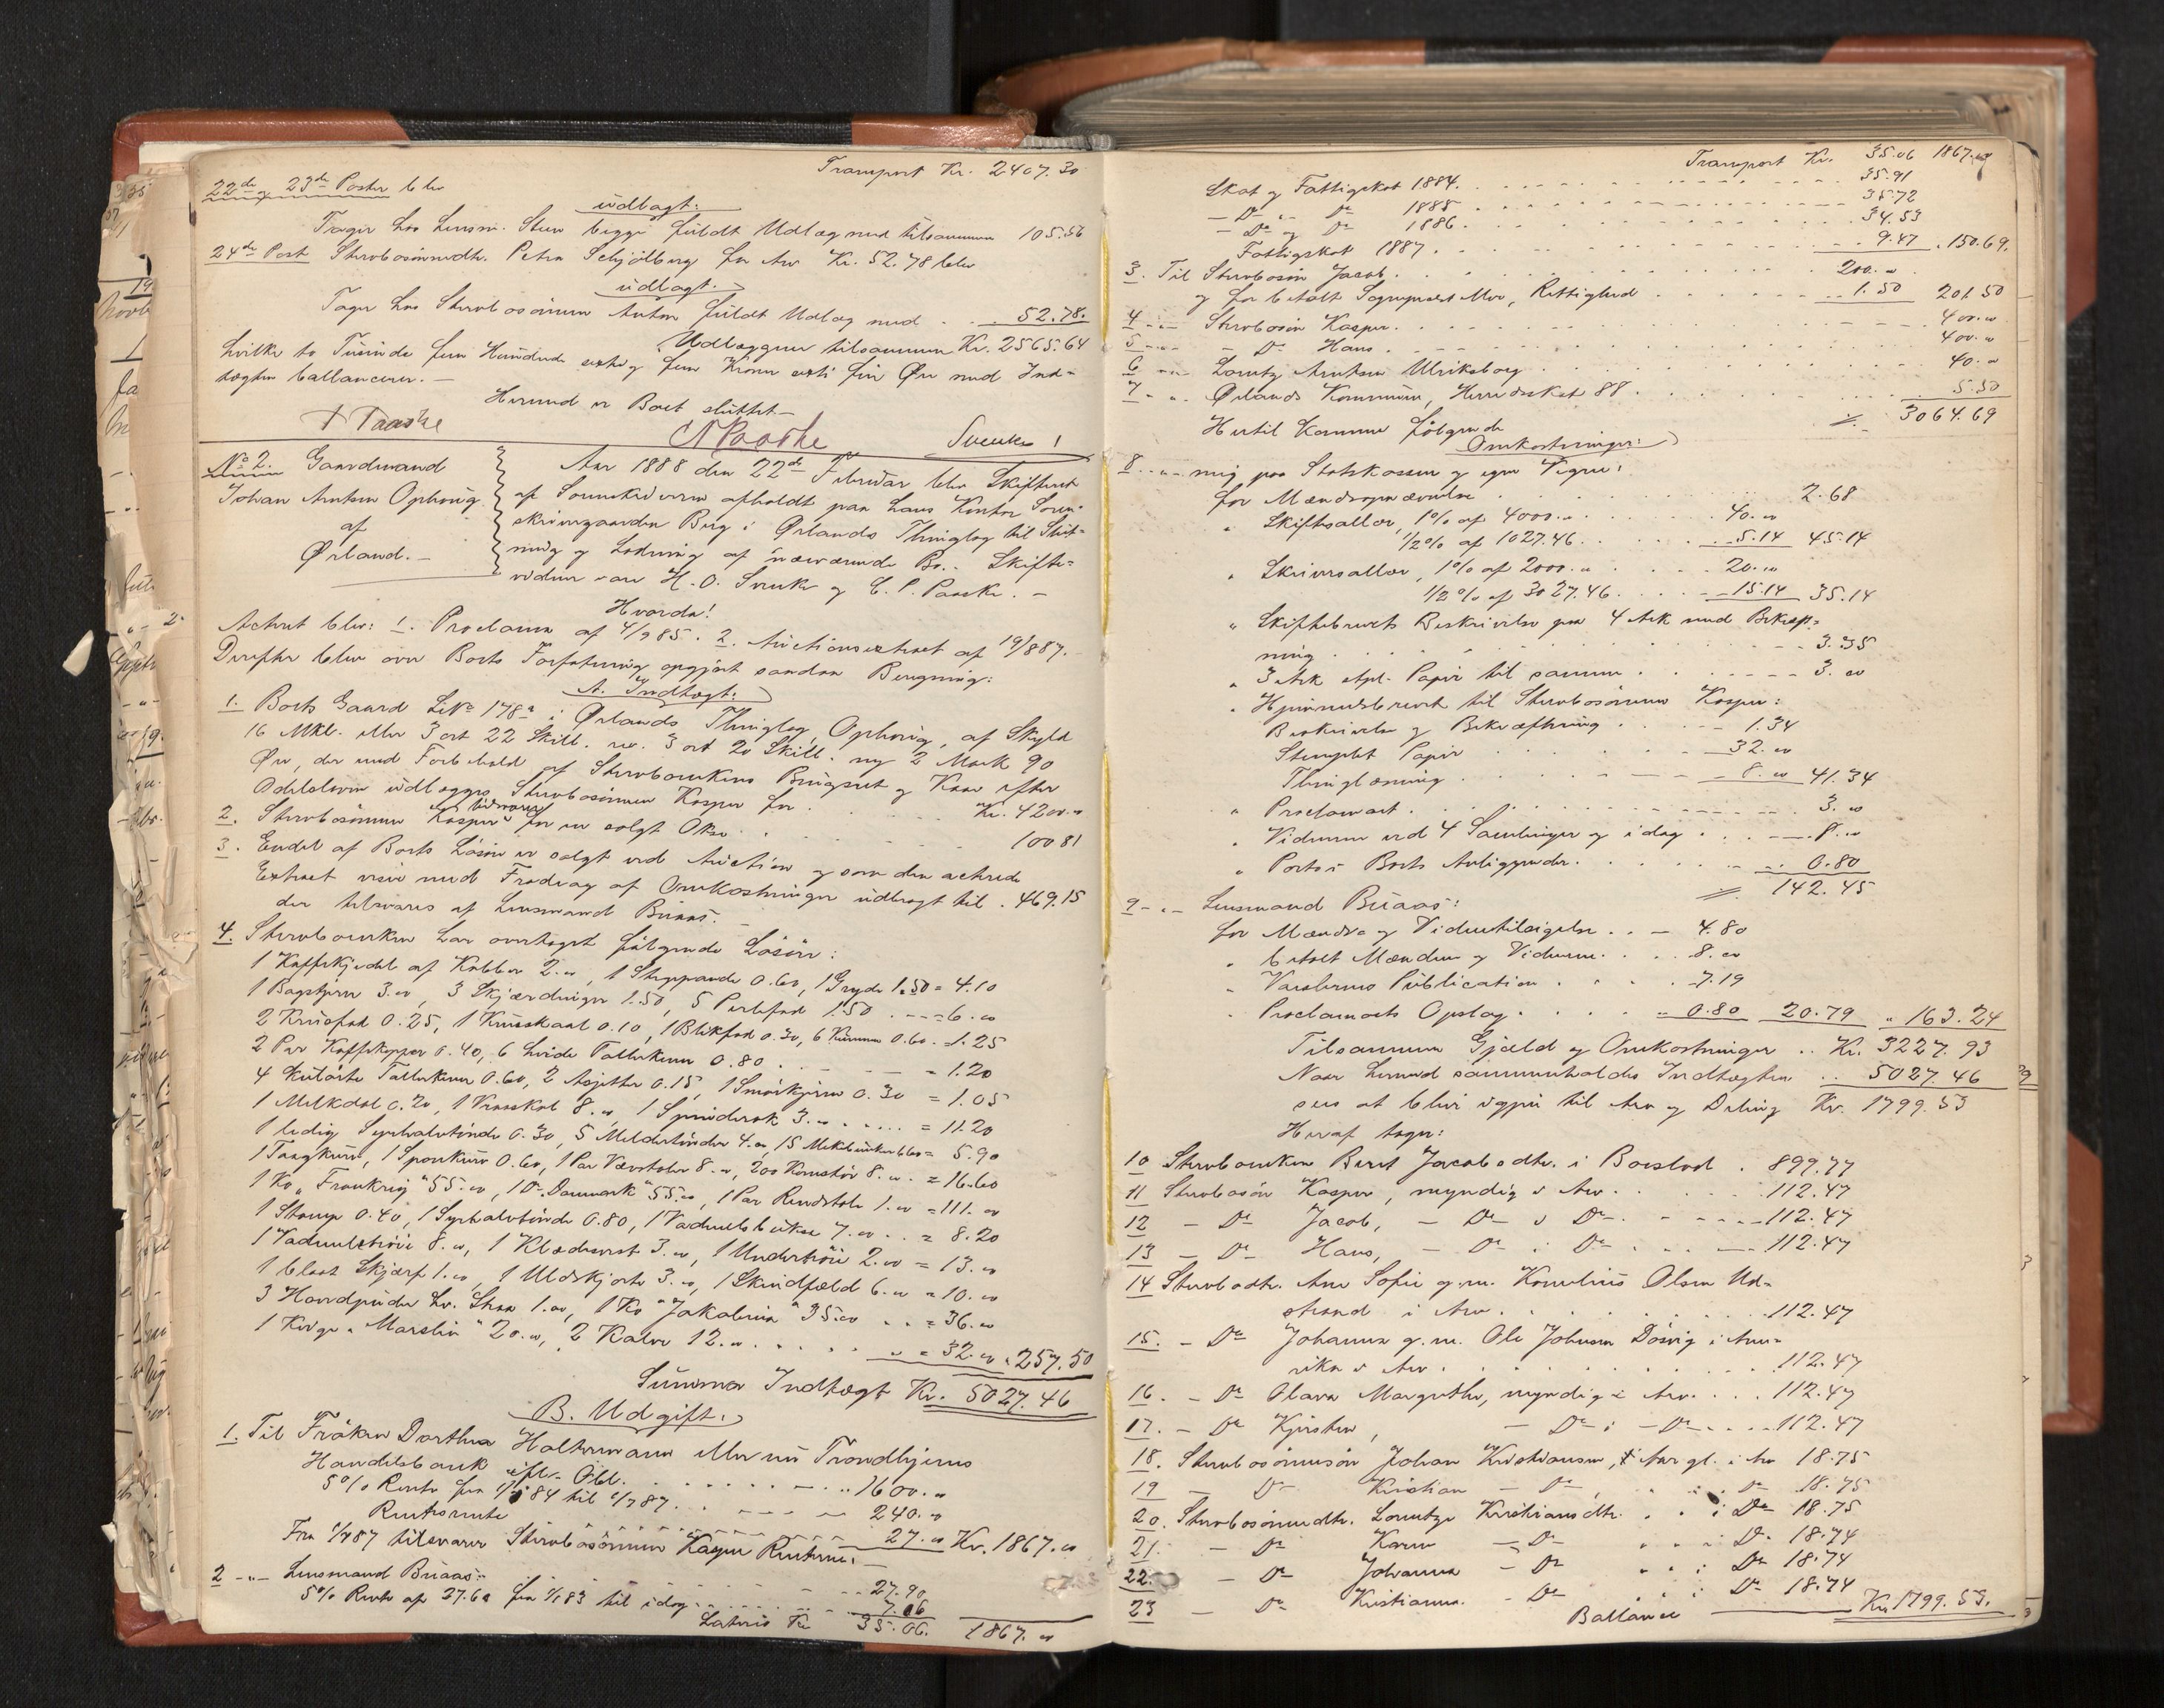 Transport Kr. 2407.30
22de og 23de Poster blev
udlagt:
Tager hos Lensm. Steen begge fuldt Udlæg med tilsammen 105.56
24de Post Sterbosönnedtr. Petra Schjölberg for Arv Kr. 52.78 blev
udlagt:
Tager hos Sterbosönnen Anton fuldt Udlæg med . . 52.78.
Udlæggene tilsammen Kr. 2565.64
hvilke to Tusinde fem Hundrede sexti og fem Kroner sexti fire Øre med Ind-
tægten ballancerer. —
Hermed er Boet sluttet —
Paaske
Paaske
Svenke
No 2. Gaardmand
Johan Arntsen Ophoug
af
Ørland. —
Aar 1888 den 22de Februar blev Skifteret
af Sorenskriveren afholdt paa hans Kontor Soren-
skrivergaarden Berg i Ørlands Thinglag til Slut-
ning og Lodning af nærværende Bo. . Skifte-
vidner vare H. O. Svenke og C. P. Paaske. —
Hvorda!
Acteret blev: 1. Proclama af 4/9 85. 2. Auctionsextract af 19/887.
Derefter blev over Boets Forfatning opgjört saadan Beregning:
A. Indtægt:
1. Boets Gaard LNo 178a i Ørlands Thinglag, Ophoug, af Skyld
16 Mkl. eller 3 ort 22 Skill. rev. 3 ort 20 Skill. ny 2 Mark 90
Øre, der med Forbehold af Sterboenkens Brugsret og Kaar efter
Odelsloven udlægges Sterbosönnen Kasper for . . Kr. 4200.00
2. Sterbosönnen Kasper tilsvarer for en solgt Okse . . . 100 81
3. Endel af Boets Lösöre er solgt ved Auction og som den acterede
Extract viser med Fradrag af Omkostninger udbragt til . 469.15
der tilsvares af Lensmand Buaas. —
4. Sterboenken har overtaget fölgende Lösöre:
1 Kaffekjedel af Kobber 2.00, 1 Stegepande 0.60, 1 Gryde 1.50 = 4.10
1 Bagstjern 3.00, 3 Skjærdinger 1.50, 5 Perlefad 1.50 . . = 6.00
2 Kruøfad 0.25, 1 Kruøskaal 0.10, 1 Blikfad 0.30, 6 Kummer 0.60 = 1.25
2 Par Kaffekopper 0.40, 6 hvide Tallerkener 0.80 . . = 1.20
4 kulörte Tallerkener 0.60, 2 Asjetter 0.15, 1 Smörkjerne 0.30 = 1.05
1 Melkdal 0.20, 1 Vrasskab 8.00, 1 Spinderok 3.00 . . . . = 11.20
1 ledig Syrhalvtönde 0.30, 5 Meldertönder 4.00, 15 Melkbunker 1.60 = 5.90
1 Tangkurv, 1 Sponkurv 0.60, 1 Par Vævstoler 8.00, 200 Kornstör 8.00 . = 16.60
1 Ko „Frankrig" 55.00, 1 Do „Danmark" 55.00, 1 Par Rendstole 1.00 = 111.00
1 Stamp 0.40, 1 Syrhalvtönde 0.80, 1 Vadmelsbukse 7.00 . . = 8.20
1 Vadmelströie 8.00, 1 Klædesvest 3.00, 1 Undertröie 2.00 = 13.00
1 blaat Skjærf 1.00, 1 Uldskjorte 3.00, 1 Skindfæld 6.00 = 10.00
3 Hovedpuder hv. Straa 1.00, 1 Ko „Jakobina" 35.00 . . = 36.00
1 Kvige „Marslin" 20.00, 2 Kalve 12.00 . . . . = 32.00 . 257.50
Summa Indtægt Kr. 5027.46
B. Udgift:
1. Til Fröken Dorthea Halternann eller nu Trondhjems
Handelsbank efter Obl. . . . . . 1600.00
5% Rente fra 1/7 84 til 1/7 87 . . . . 240.00
Rentesrente . . . 27.00 Kr. 1867.00
Fra 1/7 87 tilsvarer Sterbosönnen Kasper Renterne. —
2 —„— Lensmand Buaas: . . . . . 27.90
5% Rente af 27.60 fra 1/1 83 til idag . . . . . 7.16
Lateris Kr 35.06. 1867.00
Transport Kr. 35.06 1867.00
Skat og Fattigskat 1884. . . . . . 35.91
— Do „ Do 1885 . . . . . 35.72
— Do og Do 1886 . . . . . 34.53
Fattigskat 1887 . . . . . 9.47 . 150.69.
3. Til Sterbosön Jacob . . . . . 200.00
og for betalt Sogneprest Moe, Rettighed . . . . 1.50 201.50
4 —„— Sterbosön Kasper . . . . . 400.00
5 —„— — Do Hans . . . . . 400.00
6 —„— Lorentz Arntsen Ulriksborg . . . . . 40.00
7 —„— Ørlands Kommune, Herredsskat 88 . . . . . 5.50
3064.69
Hertil kommer fölgende
Omkostninger:
8 —„— mig paa Statskassens og egne Vegne:
for Mændsopnævnelse . . . . 2.68
„ Skiftesallær, 1% af 4000.00 . . . . 40.00
1/2% af 1027.46 . . . . 5.14 45.14
„ Skriversallær, 1% af 2000.00 . . . 20.00
1/2% af 3027.46 . . . . 15.14 35.14
„ Skiftebrevets Beskrivelse paa 4 Ark med Bekræf-
ning . . . . . 3.35
„ 3 Ark stpl. Papir til samme . . . . 3.00
„ Hjemmelsbrevet til Sterbosönnen Kasper:
Beskrivelse og Bekræftning . . . . 1.34
Stemplet Papir . . . . 32.00
Thinglæsning . . . . 8.00 41.34
„ Proclamaet . . . . . 3.00
„ Vidnerne ved 4 Samlinger og idag . . . 8.00
„ Porto i Boets Anliggender . . . . 0.80
142.45
9 —„— Lensmand Buaas:
for Mænds- og Vidnetilsigelse . . — 4.80
„ betalt Mændene og Vidnerne . . . 8.00
„ Varslernes Publication . . . . 7.19
„ Proclamaets Opslag . . . . 0.80 20.79 „ 163.24
Tilsammen Gjæld og Omkostninger . . Kr. 3227.93
Naar hermed sammenholdes Indtægten . . 5027.46
sees at blive igjen til Arv og Deling Kr. 1799.53
Heraf tager:
10 Sterboenken Berit Jacobsdtr. i Boeslod . 899.77
11 Sterbosön Kasper, myndig i Arv . . . . 112.47
12 — Do Jacob, — Do — i Do . . . . 112.47
13 — Do Hans, — Do i Do . . . . 112.47
14 Sterbodtr. Ane Sofie g. m. Kornelius Olsen Ud-
strand i Arv . . . . . 112.47
15. — Do Johanna g. m. Ole Johnsen Dösvig i Ame-
rika i Arv . . . . . 112.47
16. — Do Olava Margrethe, myndig i Arv . . . 112.47
17. — Do Kjersten, — Do i — Do . . . . 112.47
18. Sterbosönnesön Johan Kristiansen, Aar gl. i Arv 18.75
19 — Do Kristian — Do, „ „ i Do 18.75
20. Sterbosönnedtr. Lorentze Kristiansdtr. „ „ i Do 18.75
21. — Do Karen — Do „ „ i Do 18.74
22. — Do Johanna — Do „ „ i Do 18.74
23 — Do Kristianna. - Do „ „ i Do 18.74
Ballance Kr. 1799.53.